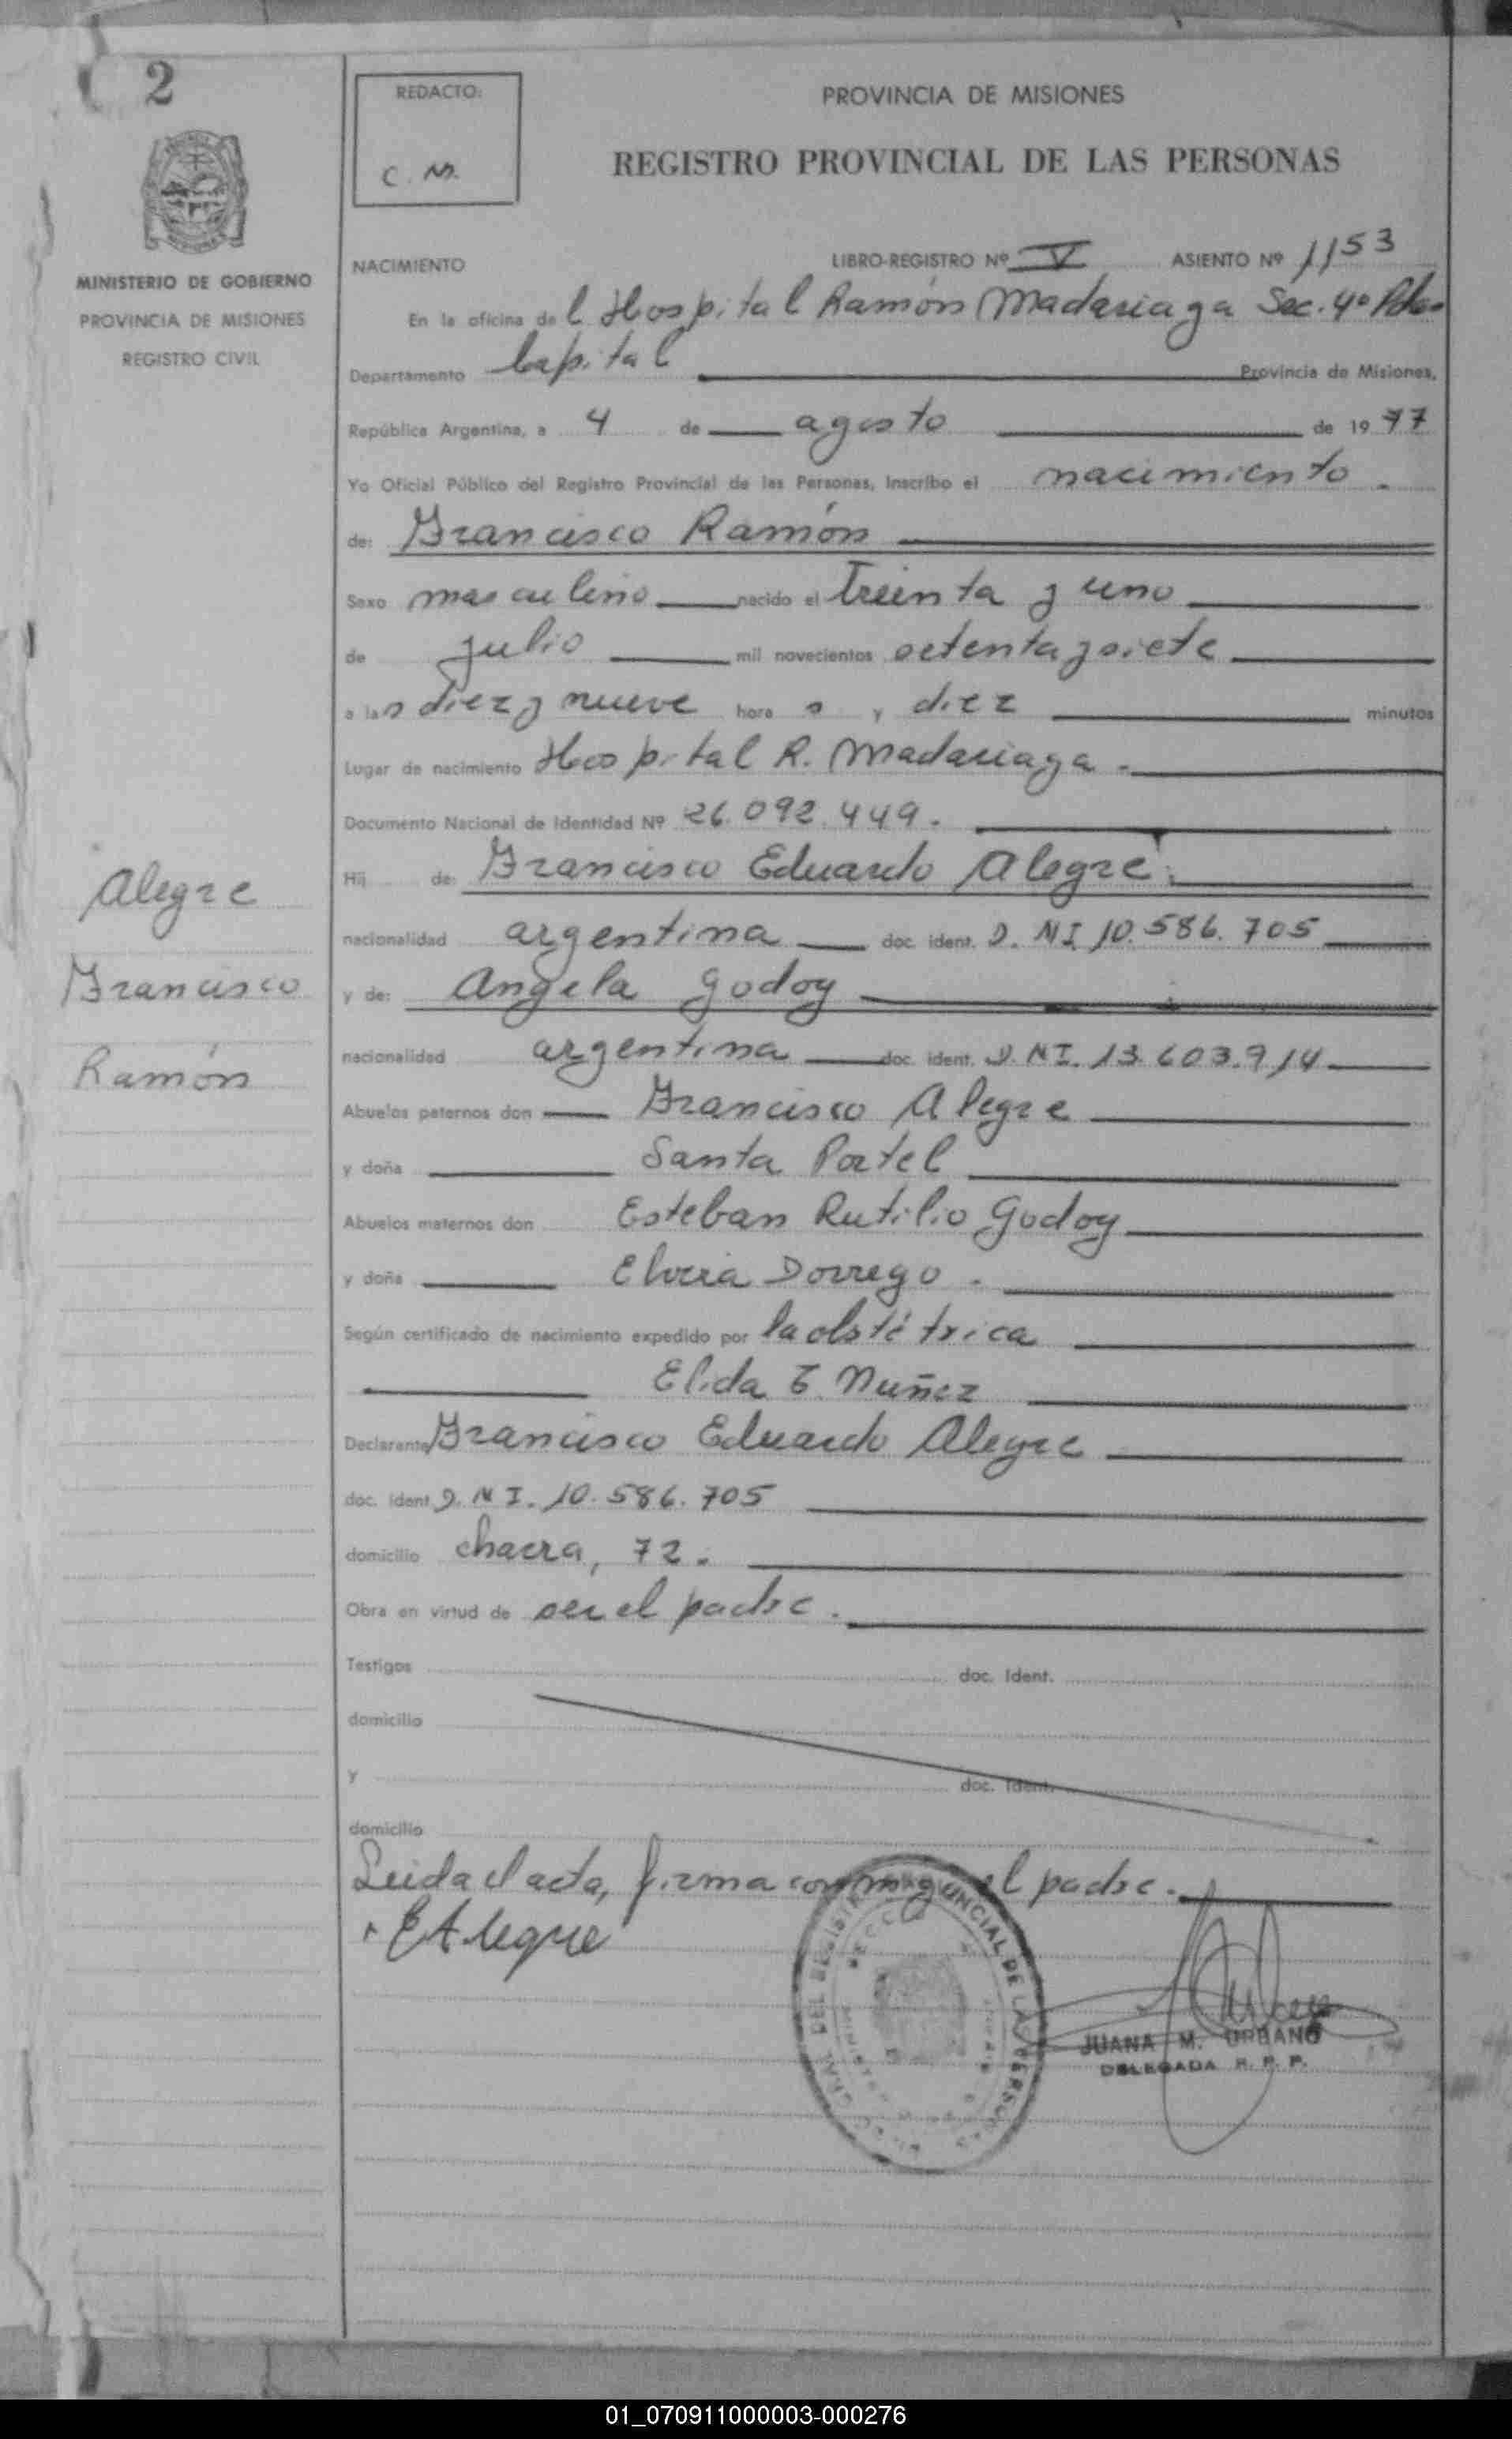 2
MINISTERIO DE GOBIERNO
PROVINCIA DE MISIONES
REGISTRO CIVIL
Alegre
Francisco
Ramón
REDACTO:
C. M.
PROVINCIA DE MISIONES
REGISTRO PROVINCIAL DE LAS PERSONAS
NACIMIENTO LIBRO-REGISTRO Nº V ASIENTO Nº 1153
En la oficina de l Hospital Ramón Madariaga Sec. 4º Pdas
Departamento Capital Provincia de Misiones,
República Argentina, a 4 de agosto de 19 77
Yo Oficial Público del Registro Provincial de las Personas, Inscribo el nacimiento.
de: Francisco Ramón
Sexo masculino nacido el treinta y uno
de julio mil novecientos setenta y siete
a las diez y nueve hora s y diez minutos
Lugar de nacimiento Hospital R. Madariaga.
Documento Nacional de Identidad Nº 26.092.449.
Hij de: Francisco Eduardo Alegre
nacionalidad argentina doc. ident. D. NI 10.586.705
y de: Angela Godoy
nacionalidad argentina doc. ident. D. NI. 13.603.914
Abuelos paternos don Francisco Alegre
y doña Santa Portel
Abuelos maternos don Esteban Rutilio Godoy
y doña Elvira Dorrego.
Según certificado de nacimiento expedido por la obstétrica
Elida E. Nuñez
Declarante Francisco Eduardo Alegre
doc. ident. D. N I. 10.586.705
domicilio chacra, 72.
Obra en virtud de ser el padre.
Testigos doc. Ident.
domicilio
y doc. Ident.
domicilio
Leida el acta, firma conmigo el padre.
EAlegre
JUANA M. URBANO
DELEGADA R. P. P.
01_070911000003-000276